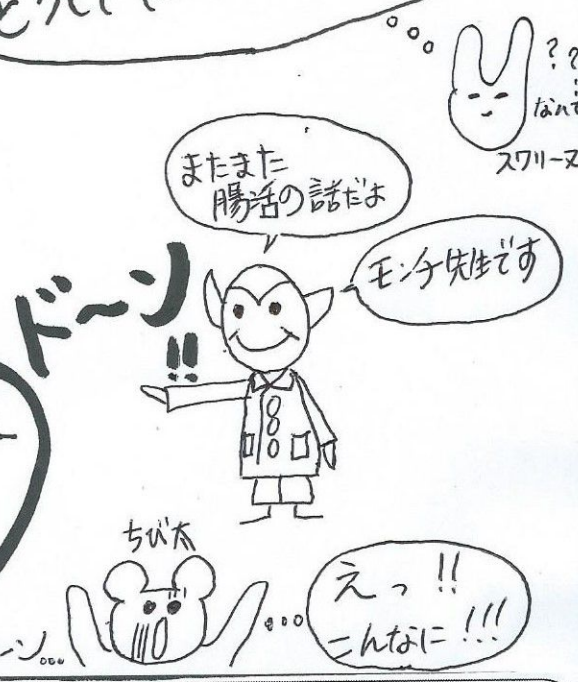 ??
なんで
スワリーヌ
またまた
腸活の話だよ
モンチ先生です
ドーン!!
ちび太
えっ!!
こんなに!!!
ーン